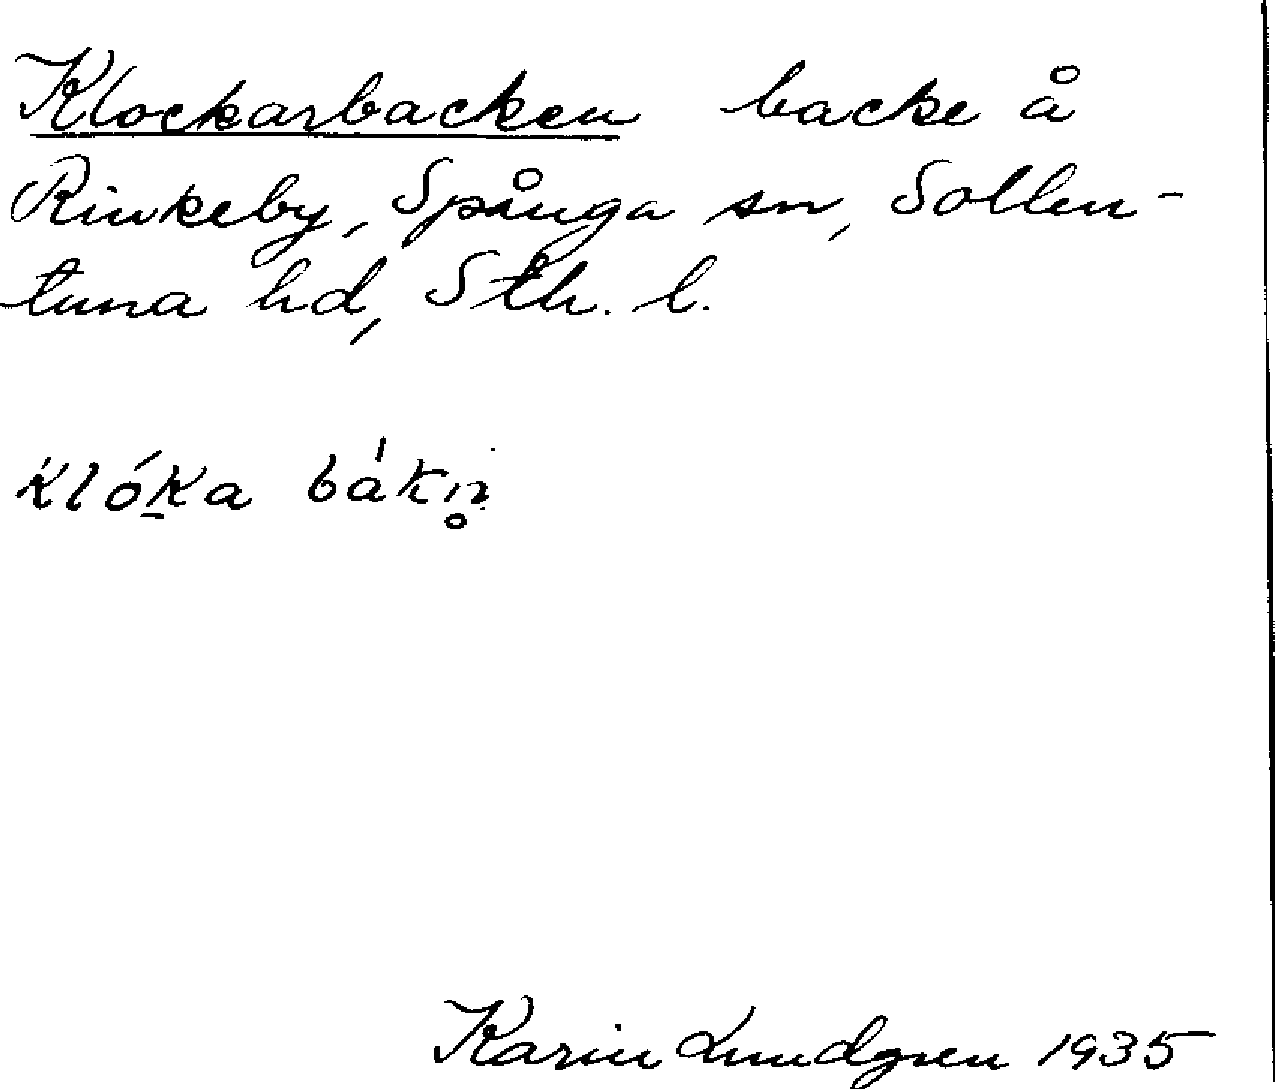 Klockarbacken backe å
Rinkeby, Spånga sn, Sollen-
tuna hd, Sth. l.
klóḵa bákn̥
Karin Lundgren 1935